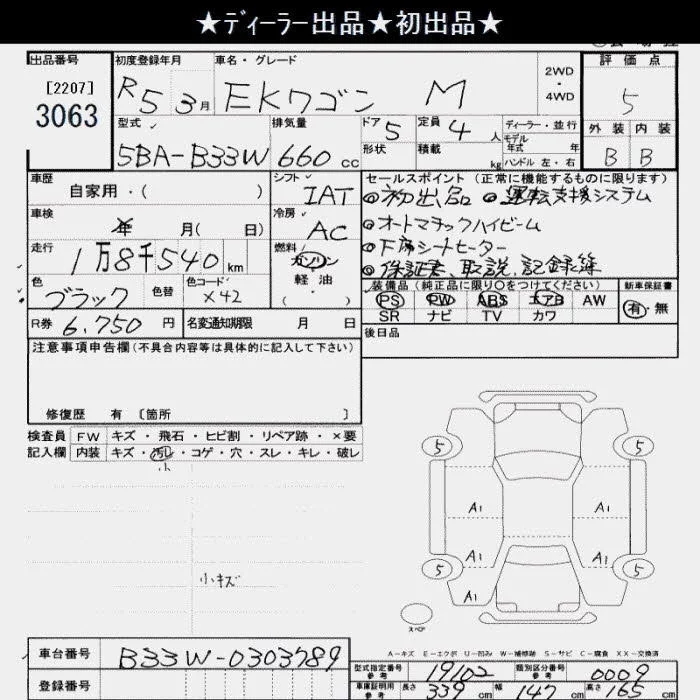 ★ディーラー出品★初出品★
出品番号 初度登録年月 車名・グレード 評価点
[2207]
3063
R5 3月 EKワゴン M 2WD・4WD 5
型式 排気量 ドア 5 定員 4人 ディーラー・並行 外装 内装
5BA-B33W 660cc 形状 積載 kg モデル年式 年 ハンドル 左・右 B B
車歴 シフト セールスポイント (正常に機能するものに限ります)
自家用・( ) IAT ◎初出品 ◎運転支援システム
車検 年 月( 日) 冷房 AC ◎オートマチックハイビーム
走行 燃料 ◎下席シートヒーター
1万8千540km ガソリン ◎保証書、取説、記録簿
軽油
( )
色 色替 色コード 装備品 (純正品に限り〇をつけてください) 新車保証書
ブラック X42 PS PW ABS エアB AW 有・無
SR ナビ TV カワ
R券 6,750円 名変通知期限 月 日 後日品
注意事項申告欄(不具合内容等は具体的に記入して下さい)
修復歴 有 [箇所 ]
検査員 FW キズ・飛石・ヒビ割・リペア跡・×要
記入欄 内装 キズ・汚レ・コゲ・穴・スレ・キレ・破レ
小
小キズ
5 5
A1 A1
A1 A1
5 5
A1
スペア
A-キズ E-エクボ U-凹み W-補修跡 S-サビ C-腐食 XX-交換済
車台番号 B33W-0303789
型式指定番号 参考 19102 類別区分番号 参考 0009
登録番号
車庫証明用 参考 長さ 339cm 幅 147cm 高さ 165cm